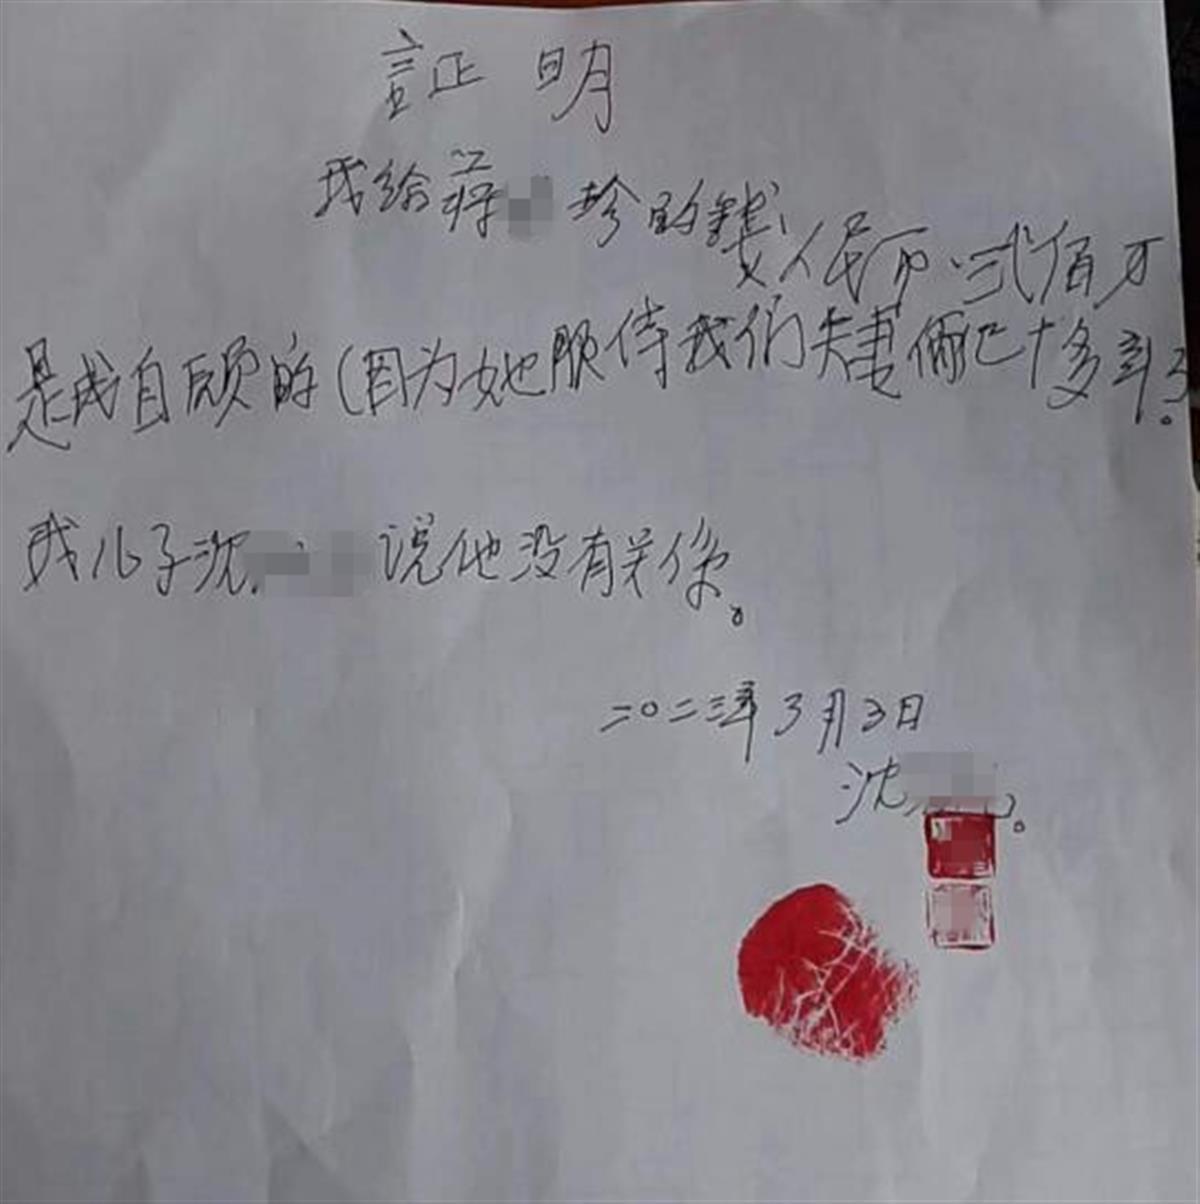 証明
我给蒋 珍的錢
人民币.弍佰万
是我自顾的(因为她服侍我们夫妻俩已十多年了。
我儿子沈 说他没有关係。
二〇二三年3月3日
沈 。